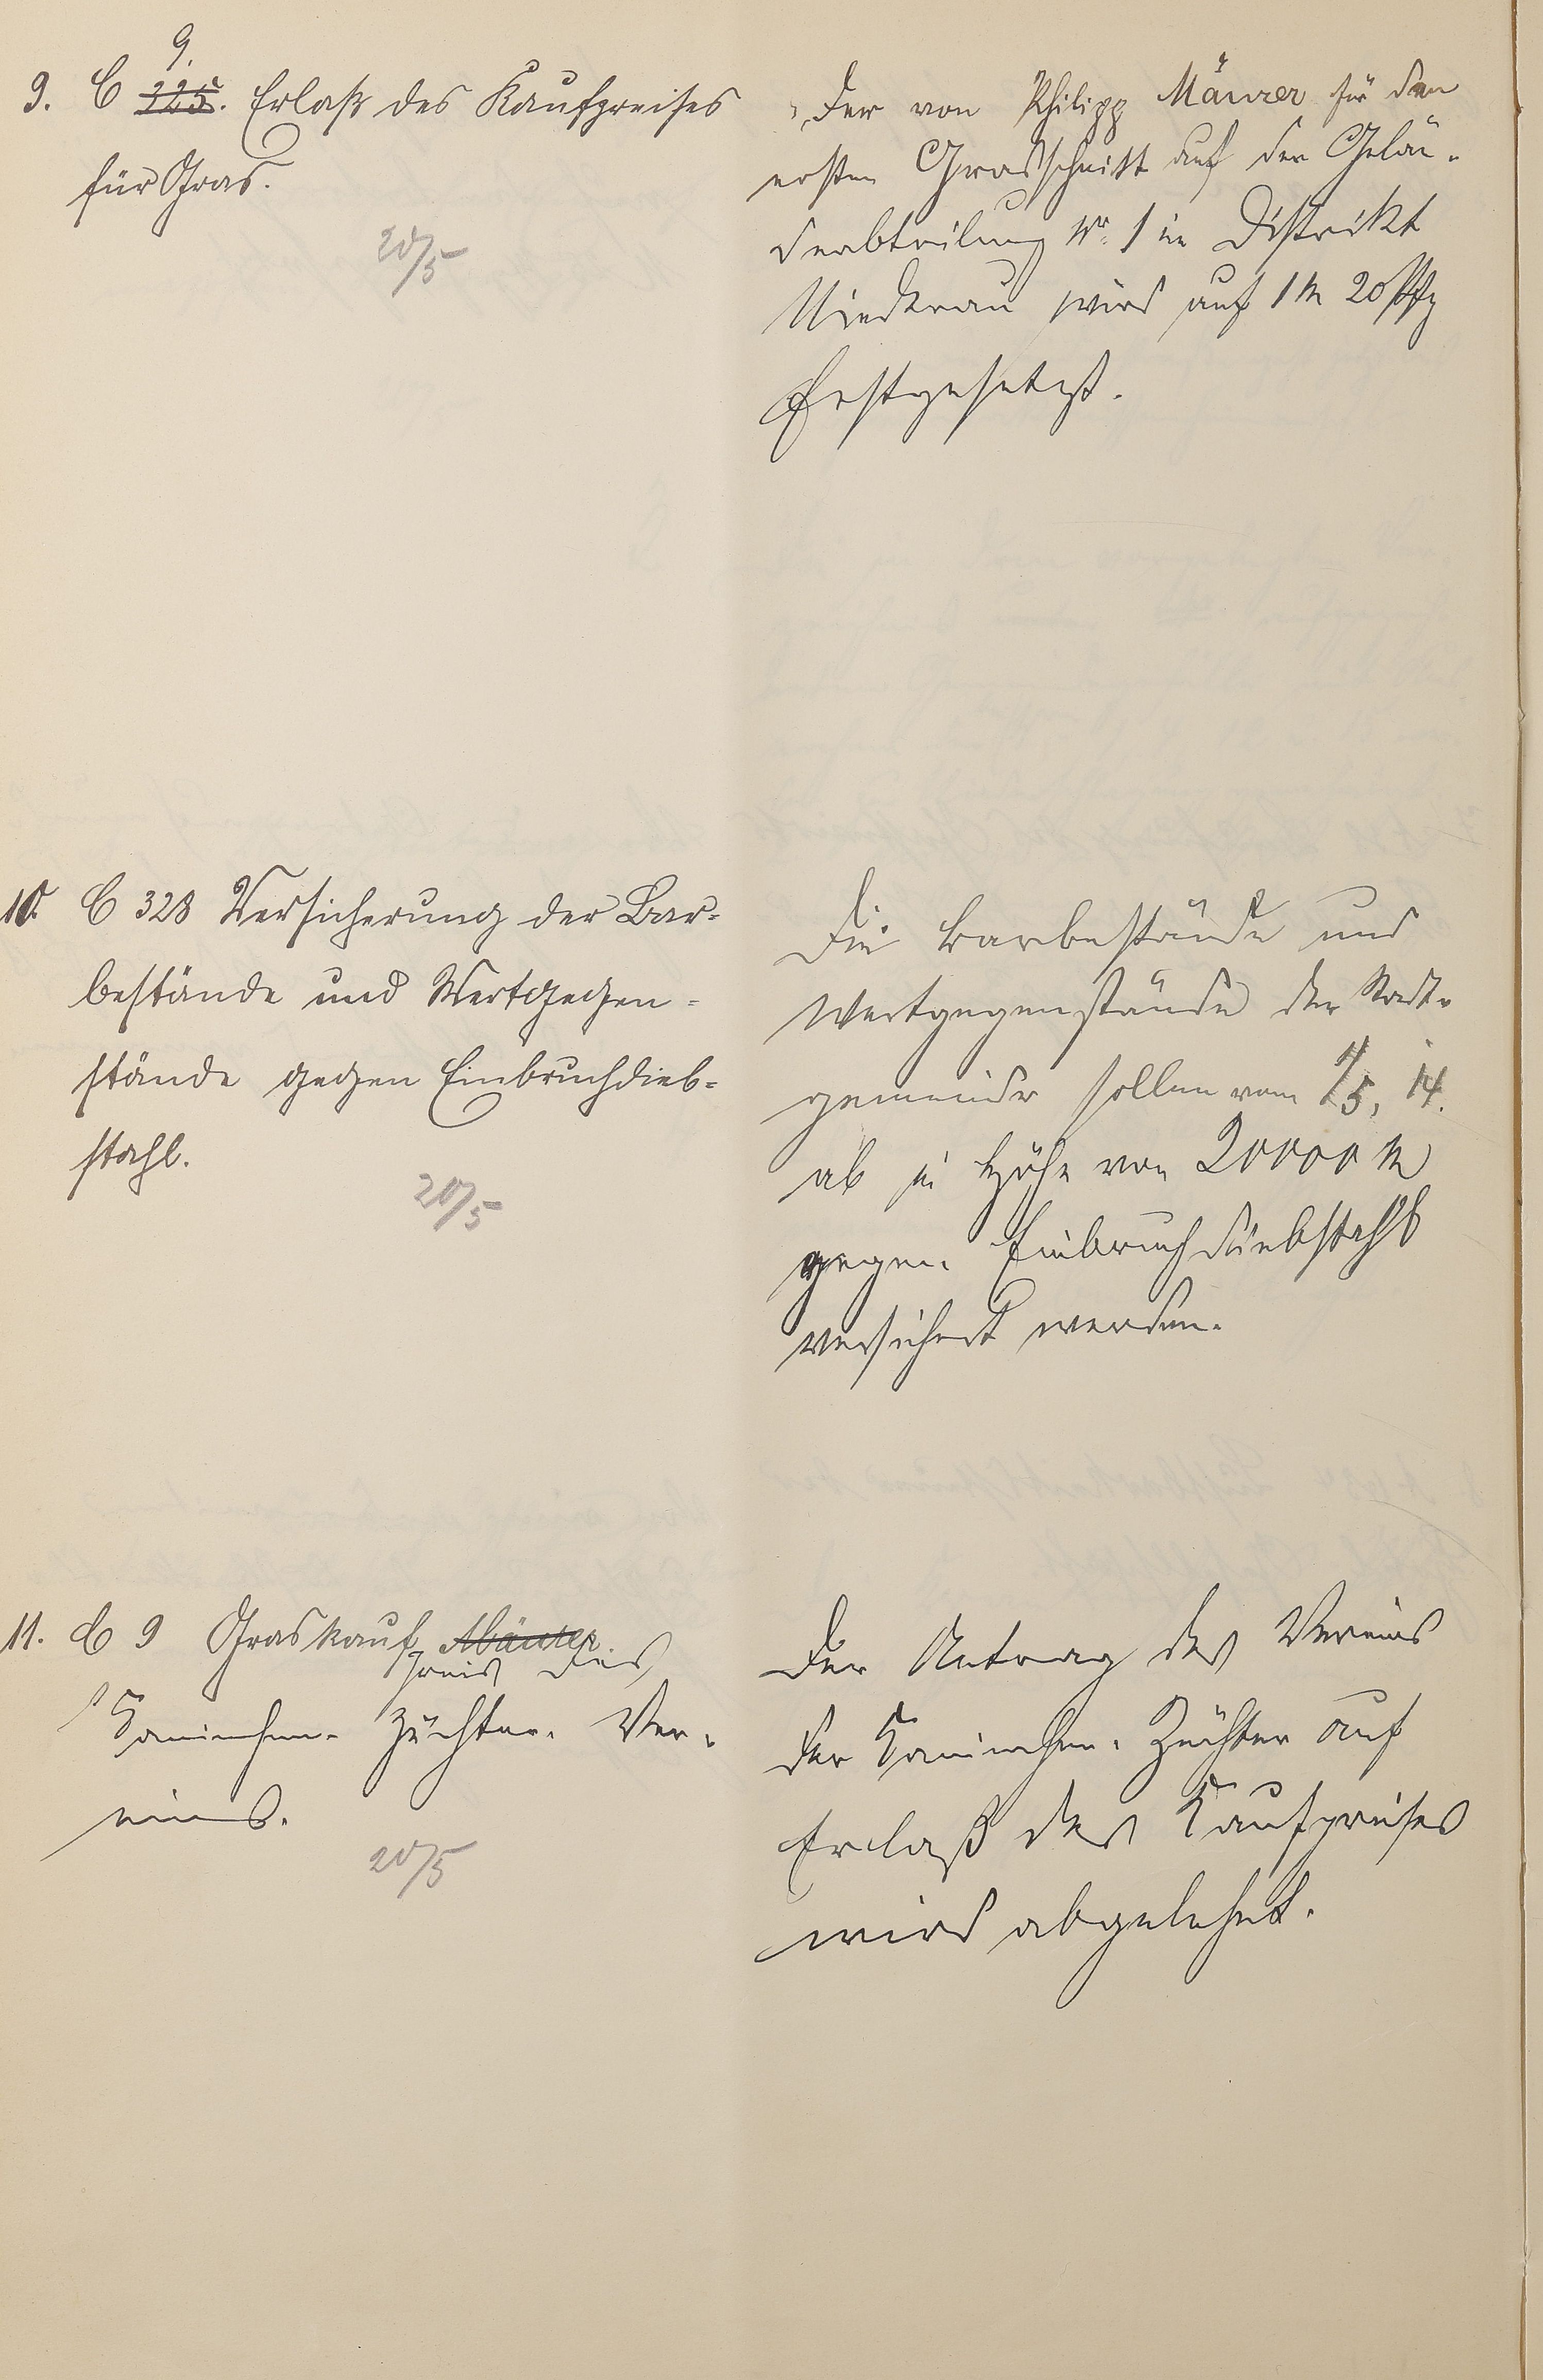 9.
9. C 225. Erlaß des Kaufpreises
für Gras.
20/5
Der von Philipp Mäurer für den
ersten Grasschnitt auf der Gelän-
deabteilung Nr. 1 im Distrikt
wird auf 1 M 20 Pfg
festgesetzt.
10. C 328 Versicherung der Bar-
bestände und Wertgegen-
stände gegen Einbruchdieb-
stahl.
20/5
Die Barbestände und
Wertgegenstände der Stadt-
gemeinde sollen vom 1/5. 14.
ab in Höhe von 20000 M
gegen Einbruchdiebstahl
versichert werden.
11. C 9 Graskauf Mäurer.
preis des
Kaninchen-Züchter-Ver-
eins.
20/5
Der Antrag des Vereins
der Kaninchen-Züchter auf
Erlaß des Kaufpreises
wird abgelehnt.